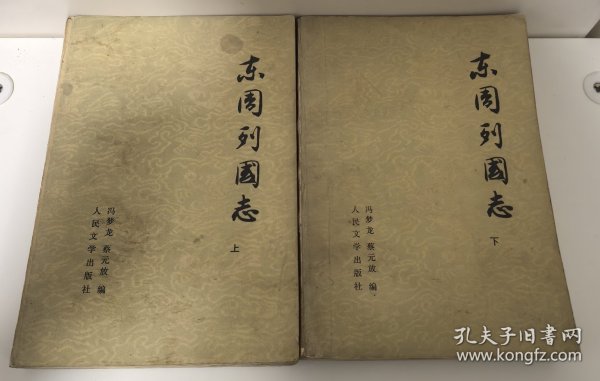 东周列國志
上
冯梦龙 蔡元放 编
人民文学出版社
东周列國志
下
冯梦龙 蔡元放 编
人民文学出版社
孔夫子旧书网
www.kongfz.com